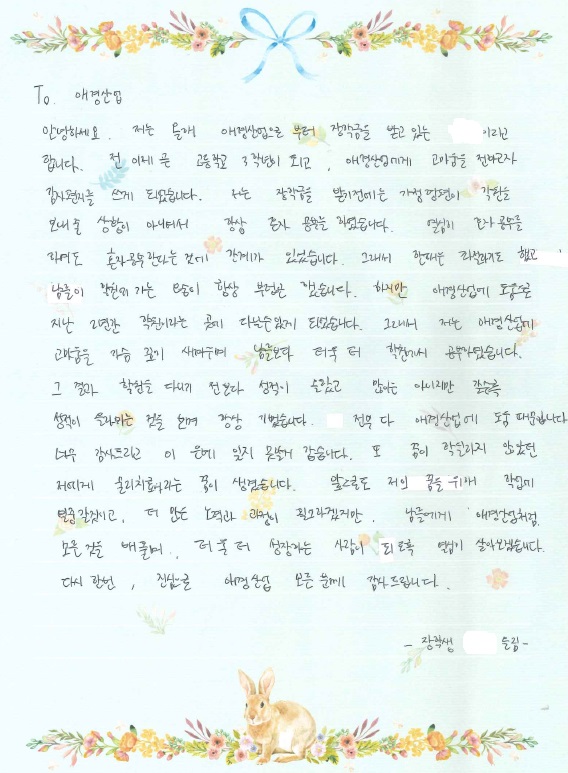 To. 애경산업
안녕하세요. 저는 올해 애경산업으로 부터 장학금을 받고 있는 이라고
합니다. 전 이제 곧 고등학교 3학년이 되고, 애경산업에게 고마움을 전하고자
감사편지를 쓰게 되었습니다. 저는 장학금을 받기전에는 가정형편이 학원을
보내줄 상황이 아니여서 항상 혼자 공부를 하였습니다. 열심히 혼자 공부를
하여도 혼자공부한다는 것에 한계가 있었습니다. 그래서 한때는 좌절하기도 했고
남들이 학원에 가는 모습이 항상 부럽곤 했습니다. 하지만 애경산업에 도움으로
지난 2년간 학원이라는 곳에 다닐수있게 되었습니다. 그래서 저는 애경산업에
고마움을 가슴 깊이 새기며 남들보다 더욱 더 학원가서 공부하였습니다.
그 결과 학원을 다니기 전보다 성적이 올랐고 많이는 아니지만 갈수록
성적이 올라가는 것을 보며 항상 기뻤습니다. 전부 다 애경산업에 도움 때문입니다
너무 감사드리고 이 은혜 잊지 못할거 같습니다. 또 꿈이 확실하지 않았던
저에게 물리치료사라는 꿈이 생겼습니다. 앞으로도 저의 꿈을 위해 학업에
열중할것이고, 더 많은 노력과 과정이 필요하겠지만, 남들에게 애경산업처럼
모든것을 베풀며, 더욱 더 성장하는 사람이 되도록 열심히 살아보겠습니다.
다시 한번, 진심으로 애경산업 모든 분께 감사드립니다.
- 장학생 올림 -